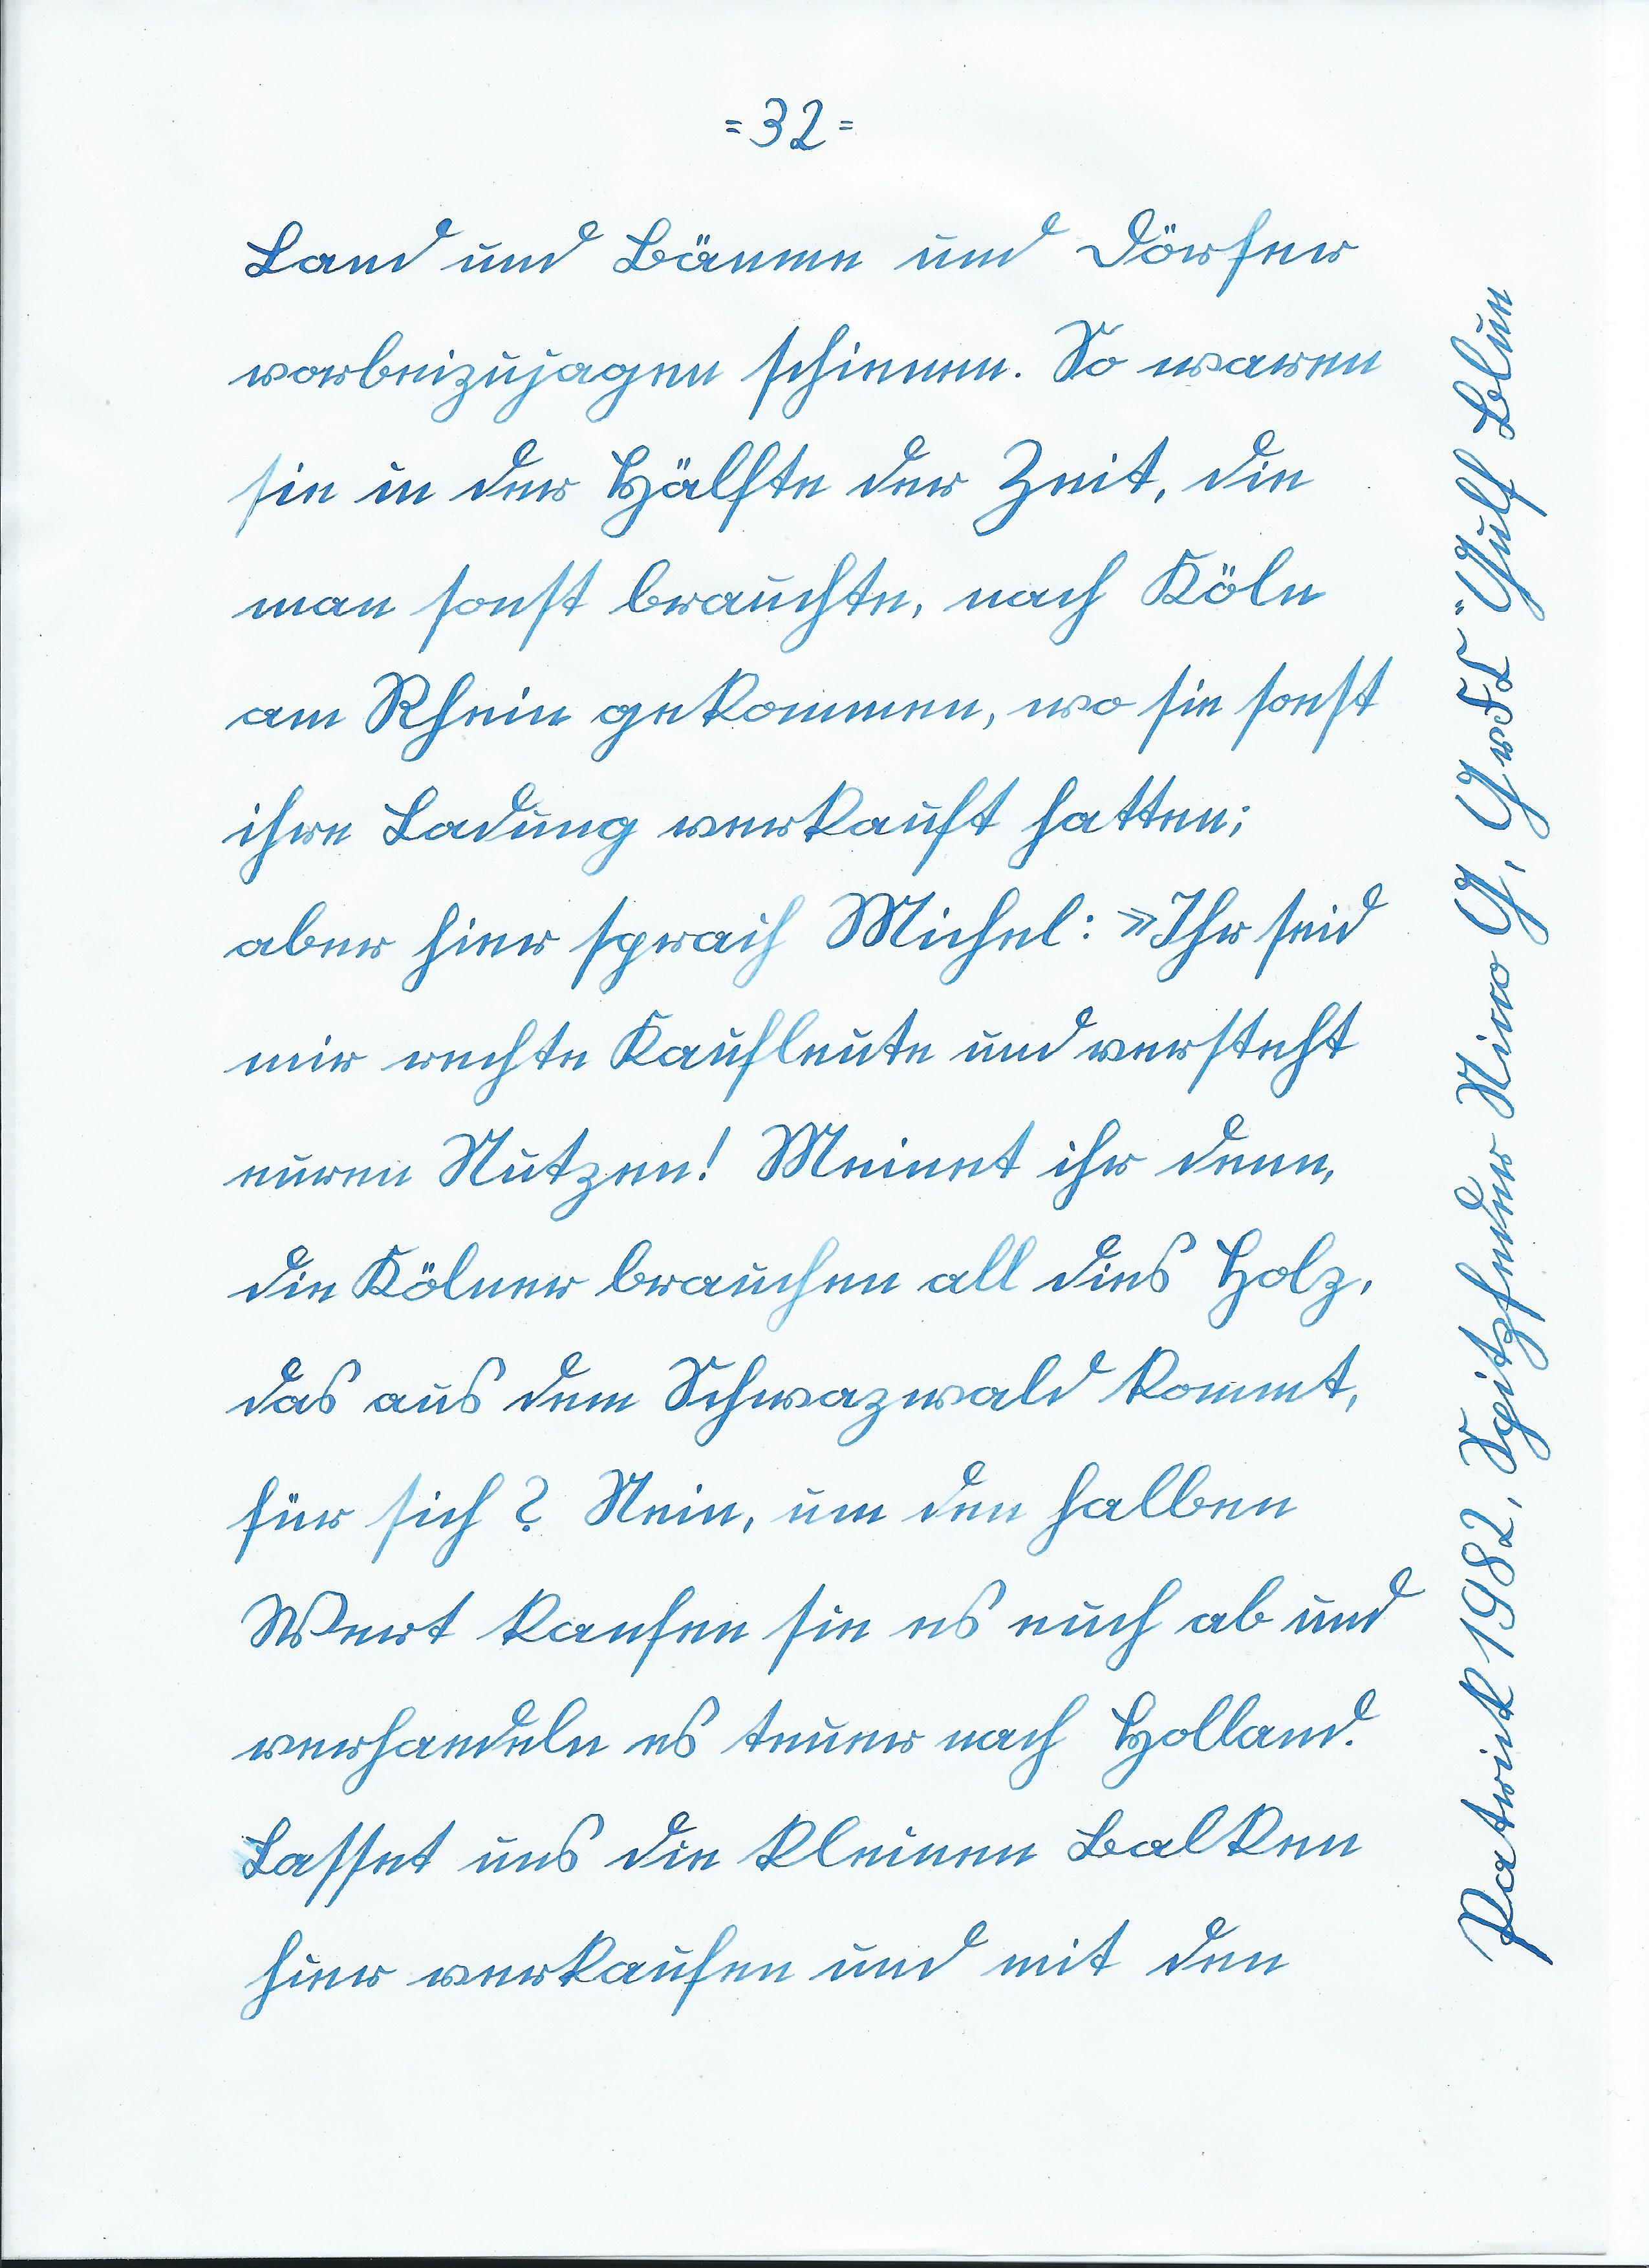 =32=
Land und Bäume und Dörfer
vorbeizujagen schienen. So waren
sie in der Hälfte der Zeit, die
man sonst brauchte, nach Köln
am Rhein gekommen, wo sie sonst
ihre Ladung verkauft hatten;
aber hier sprach Michel: »Ihr seid
mir rechte Kaufleute und versteht
euren Nutzen! Meinet ihr denn,
die Kölner brauchen all dies Holz,
das aus dem Schwazwald kommt,
für sich? Nein, um den halben
Wert kaufen sie es euch ab und
verhandeln es teuer nach Holland.
Lasset uns die kleinen Balken
hier verkaufen und mit den
Patrick 1982, Spitzfeder Nino G, "Gulf Blue